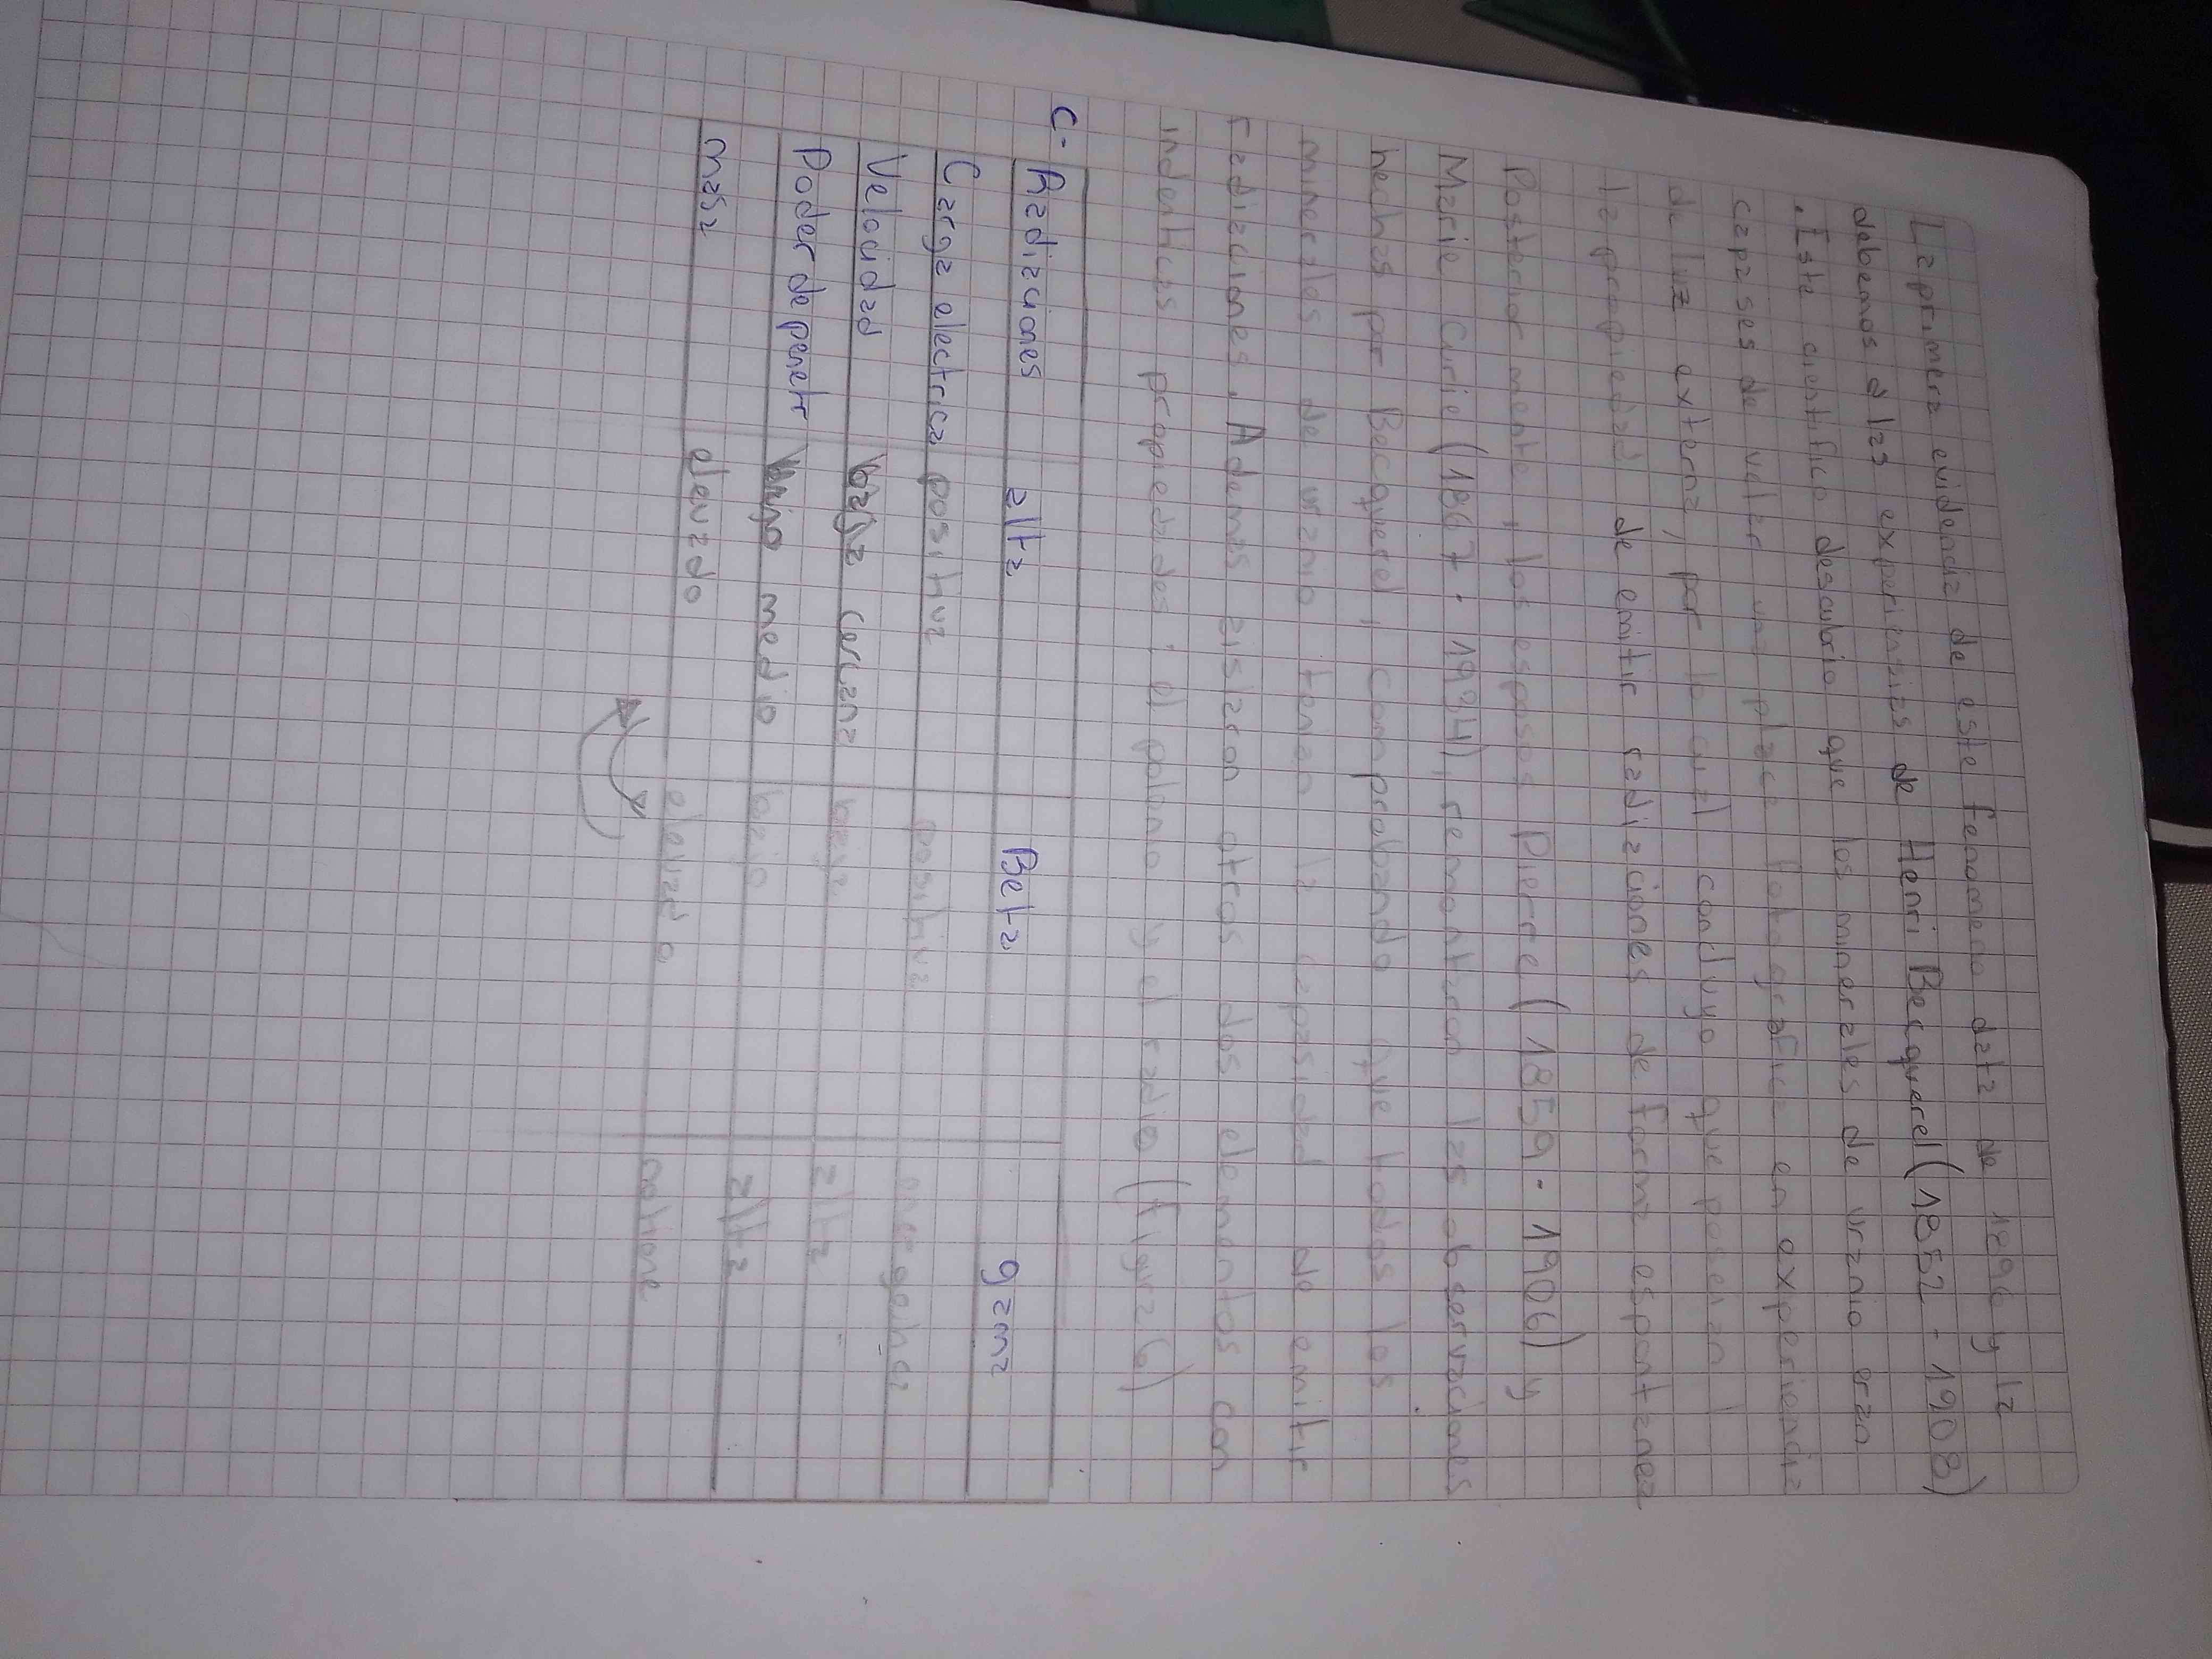 La primera evidencia de este fenomeno data de 1896 y la
debemos a las experiencias de Henri Becquerel (1852 - 1908)
. Este cientifico descubrio que los minerales de uranio eran
capases de velar una placa fotografica en experiencia
de luz externa, por lo cual concluyo que poseian
la propiedad de emitir radiaciones de forma espontanea
Posterior mente, los esposos Pierre (1859 - 1906) y
Marie Curie (1867 - 1934), remontaron las observaciones
hechas por Becquerel, comprobando que todos los
minerales de uranio tenian la capasidad de emitir
radiaciones. Ademas aislaron otros dos elementos con
indenticas propiedades: el polonio y el radio (figura 6)
C- Radiaciones alta Beta gama
Carga electrica positiva positiva
Velocidad cercana baja alta
Poder de penetr medio bajo alta
masa elevado elevado